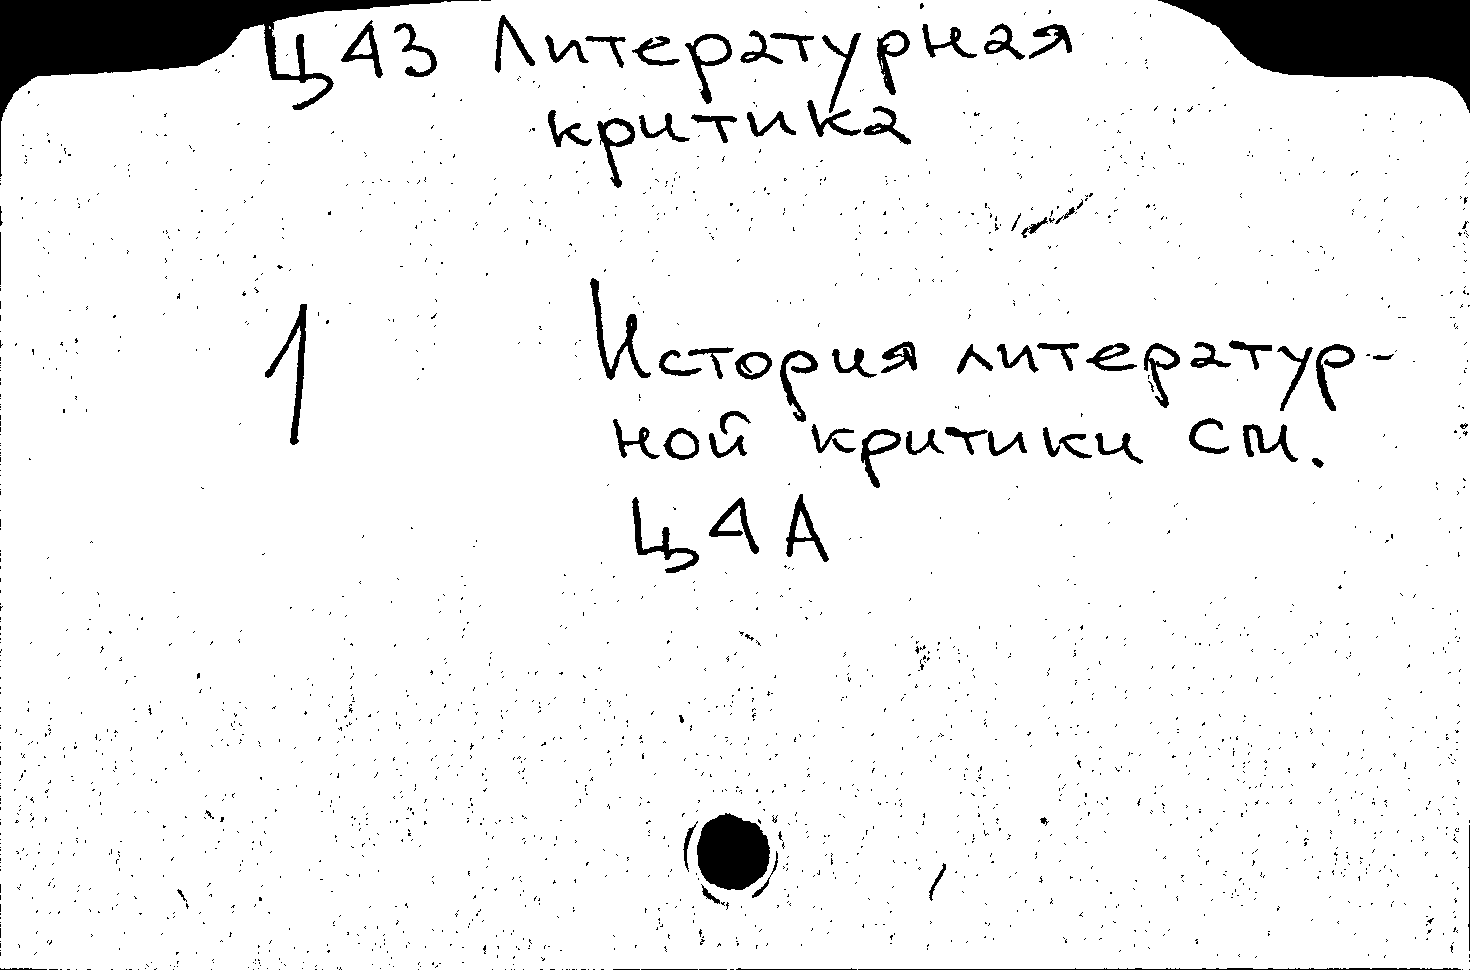 Ц43 Литературная
критика
1 История литератур-
ной критики см.
Ц4А